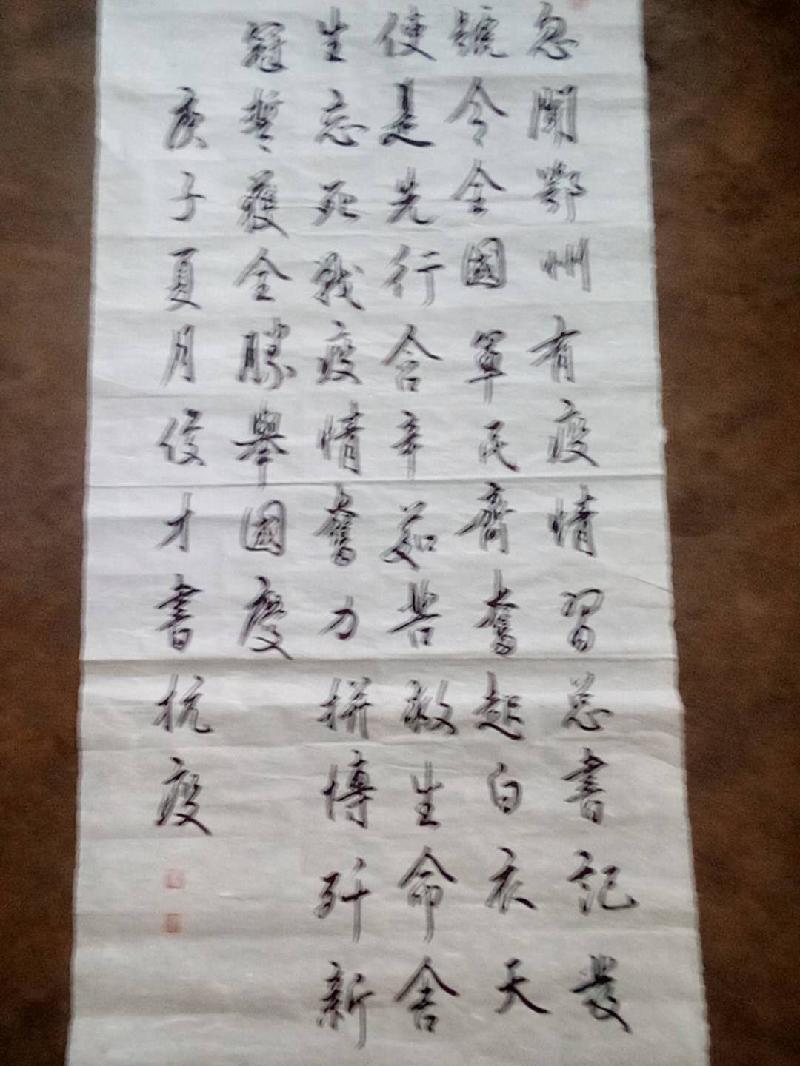 忽聞鄂州有疫情習总書記發
號令全國軍民齊奮起白衣天
使是先行含辛茹苦救生命舍
生忘死戰疫情奮力拼博歼新
冠誓獲全勝舉國慶
庚子夏月俊才書抗疫